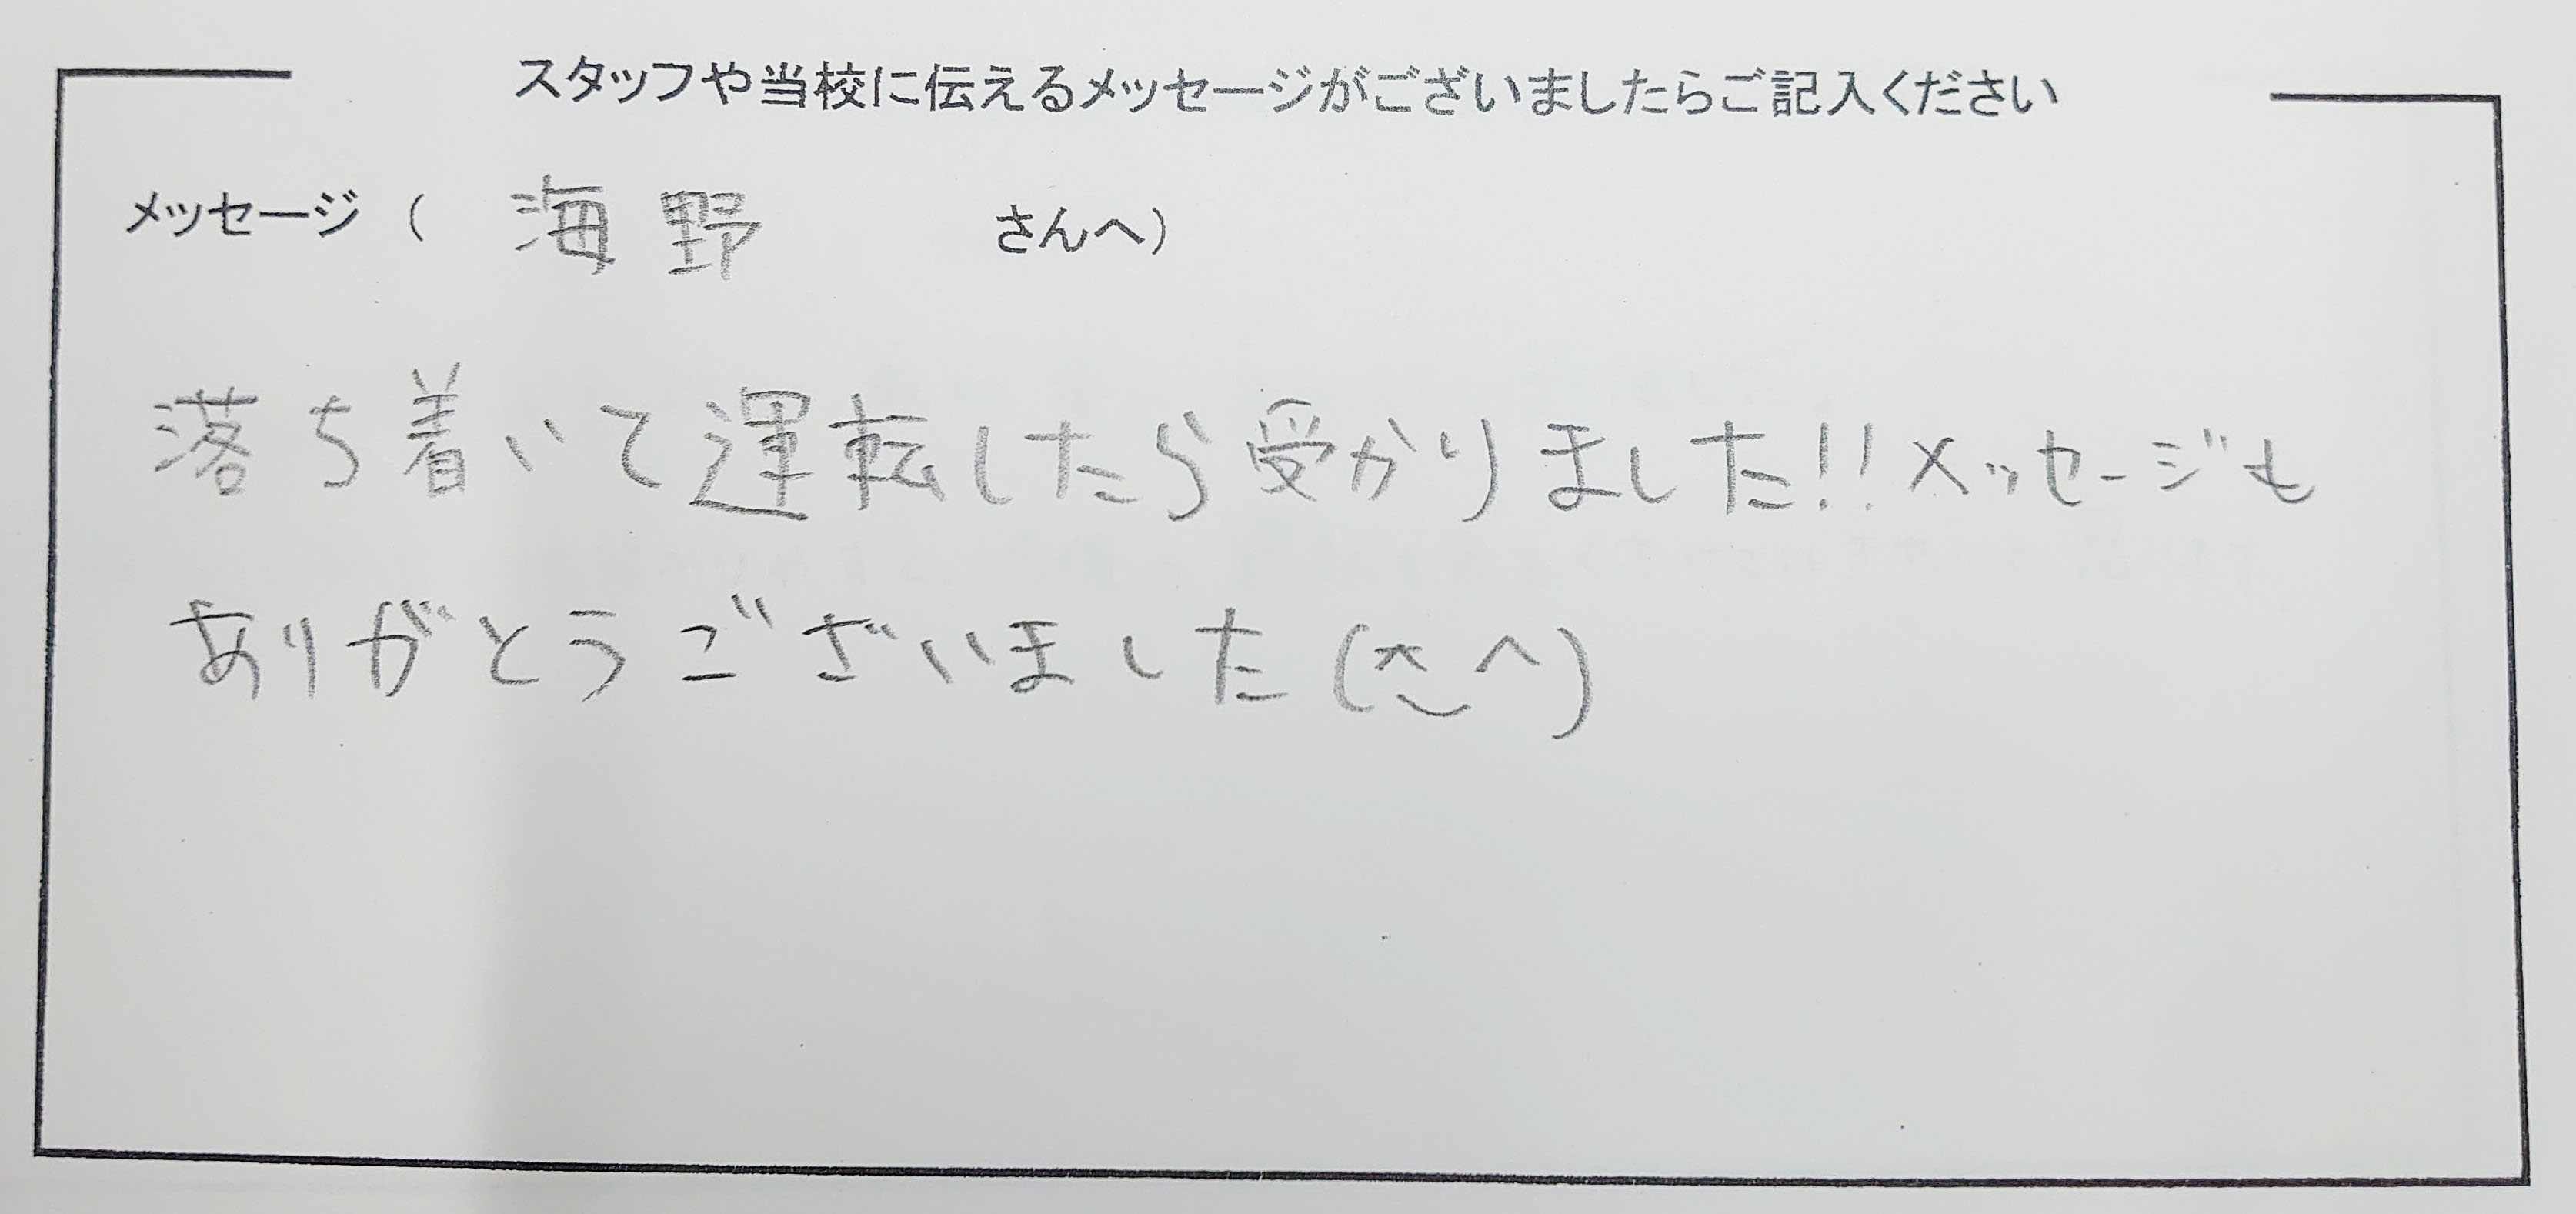 スタッフや当校に伝えるメッセージがございましたらご記入ください
メッセージ（ 海野 さんへ）
落ち着いて運転したら受かりました!!メッセージも
ありがとうございました(^_^)